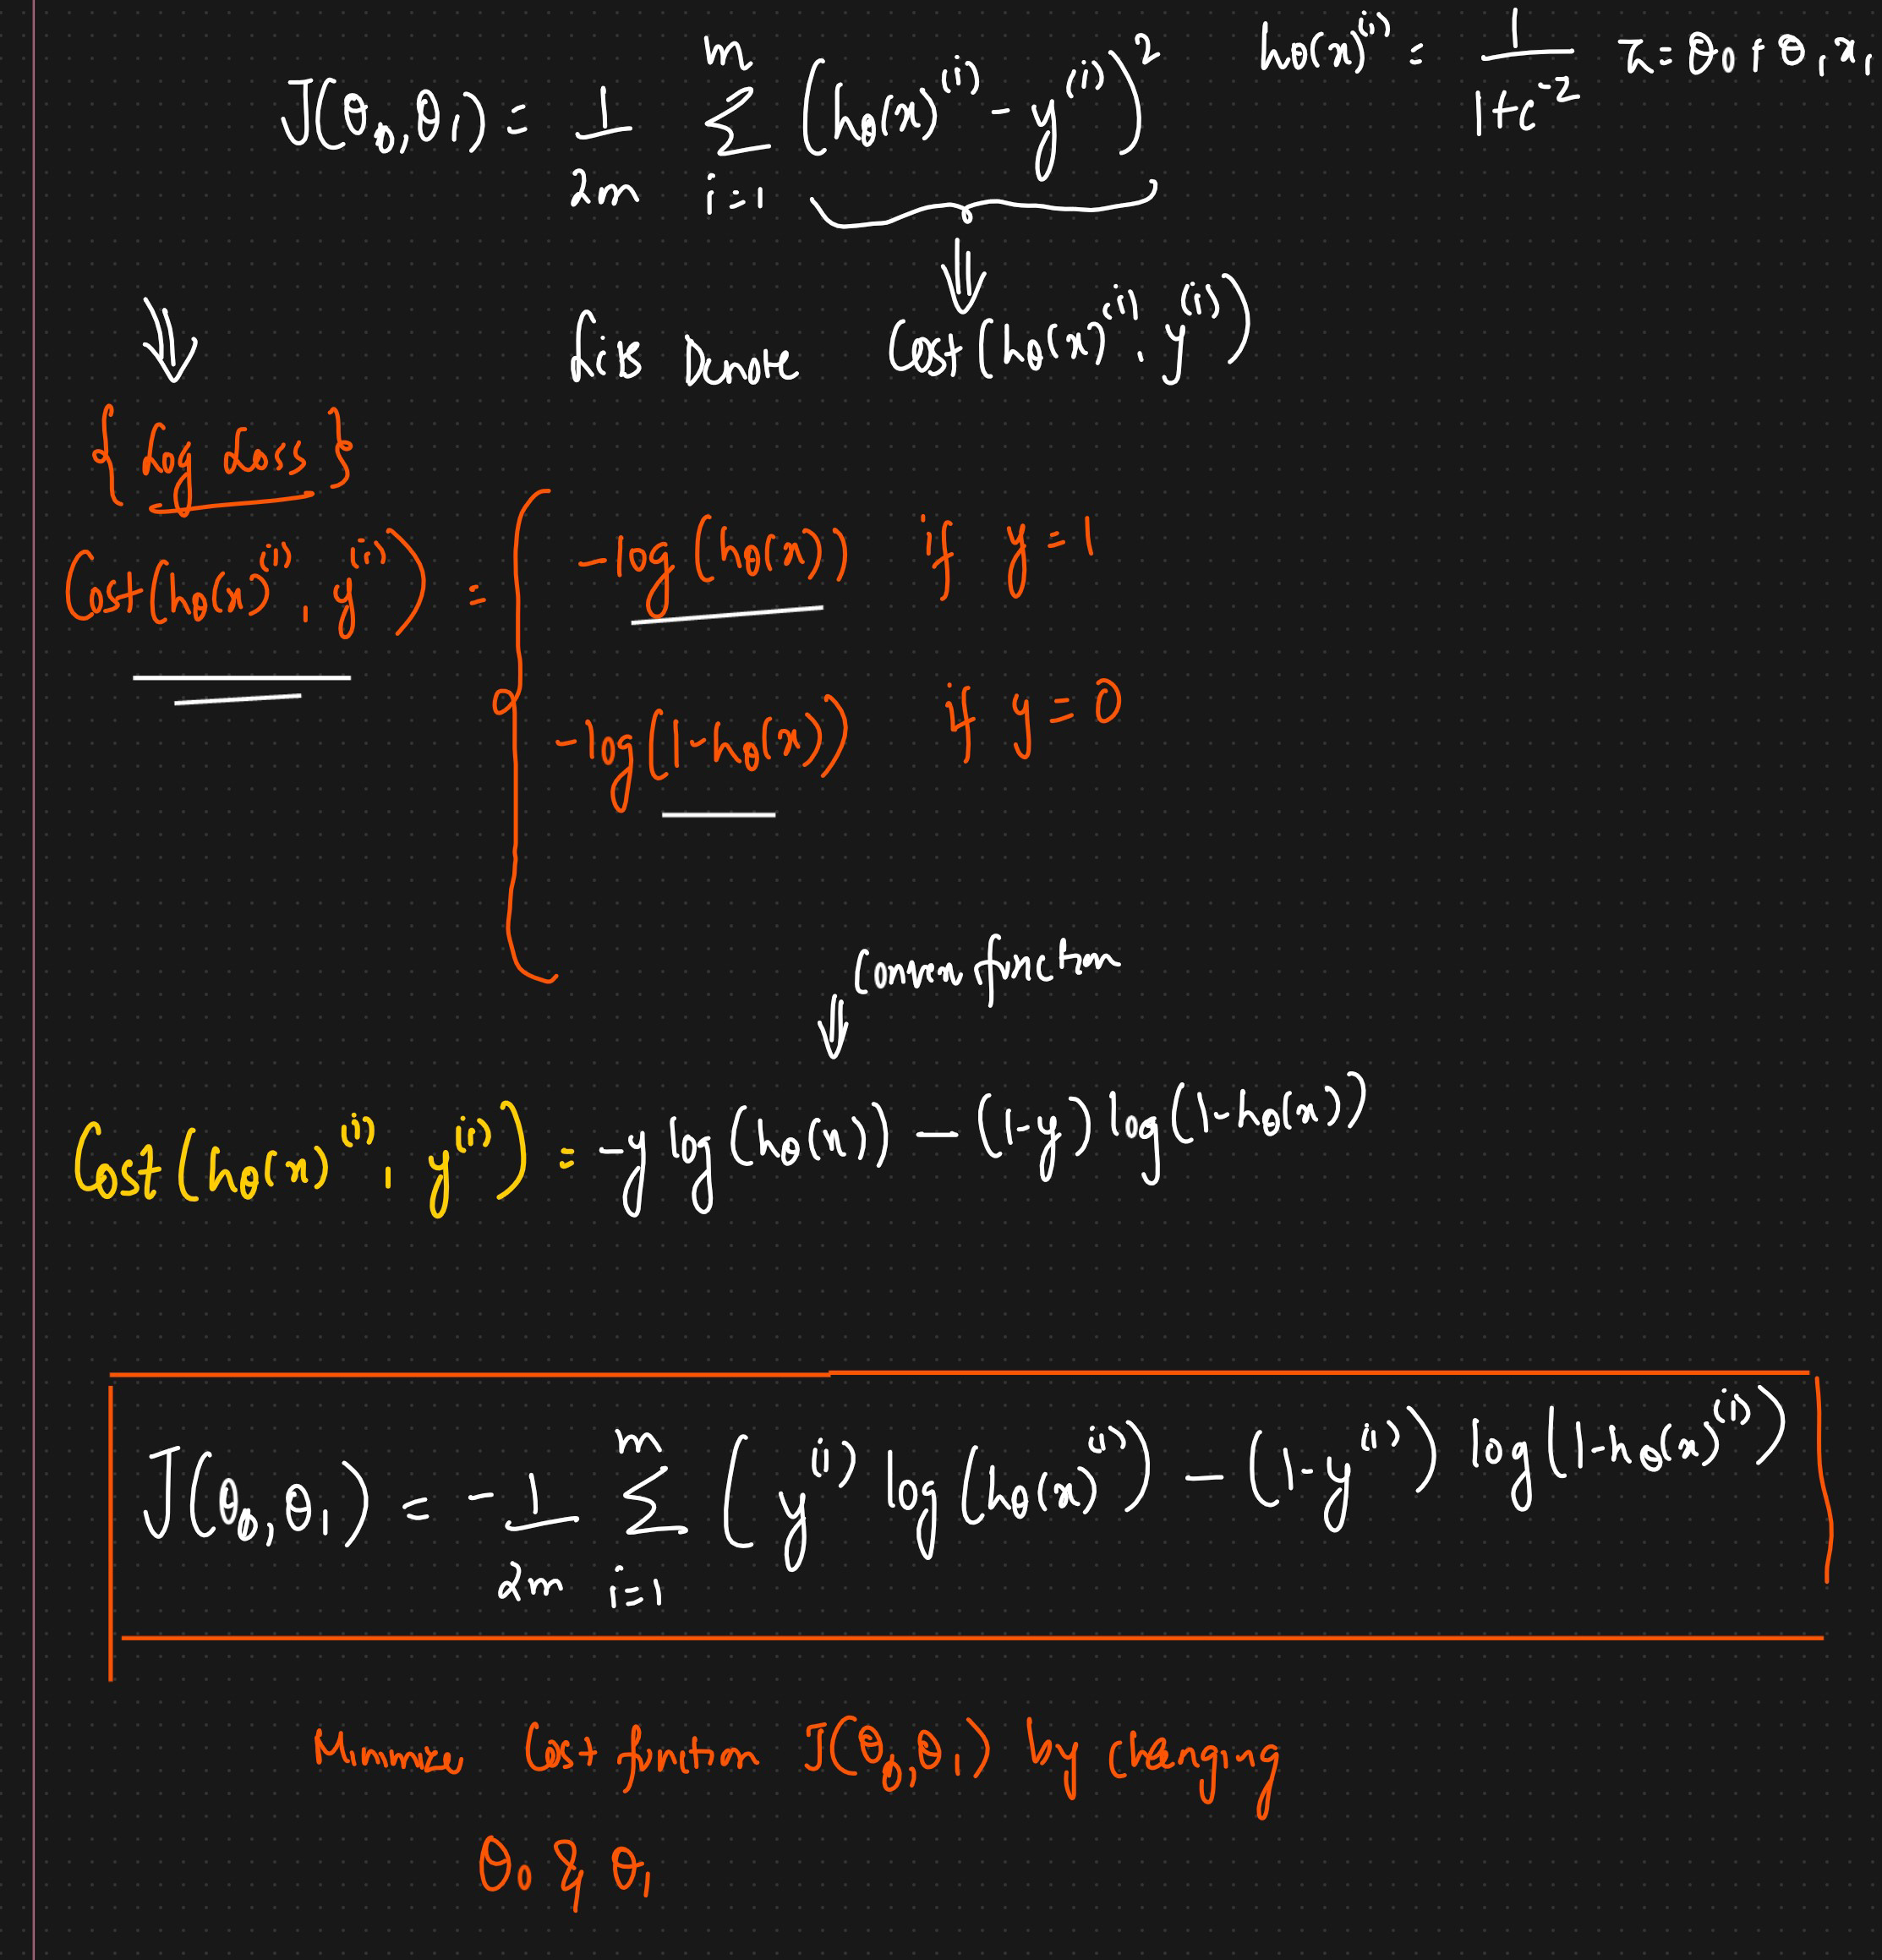 J(θ₀, θ₁) = 1/2m Σ_{i=1}^{m} (hθ(x)^(i) - y^(i))² hθ(x)^(i) = 1/(1+e^-z) z = θ₀ + θ₁x₁
⇓ Lets Denote Cost(hθ(x)^(i), y^(i))
{Log Loss}
Cost(hθ(x)^(i), y^(i)) = { -log(hθ(x)) if y=1
-log(1-hθ(x)) if y=0
⇓ Convex function
Cost(hθ(x)^(i), y^(i)) = -y log(hθ(x)) - (1-y) log(1-hθ(x))
J(θ₀, θ₁) = -1/2m Σ_{i=1}^{m} (y^(i) log(hθ(x)^(i)) - (1-y^(i)) log(1-hθ(x)^(i))
Minimize Cost function J(θ₀, θ₁) by changing
θ₀ & θ₁